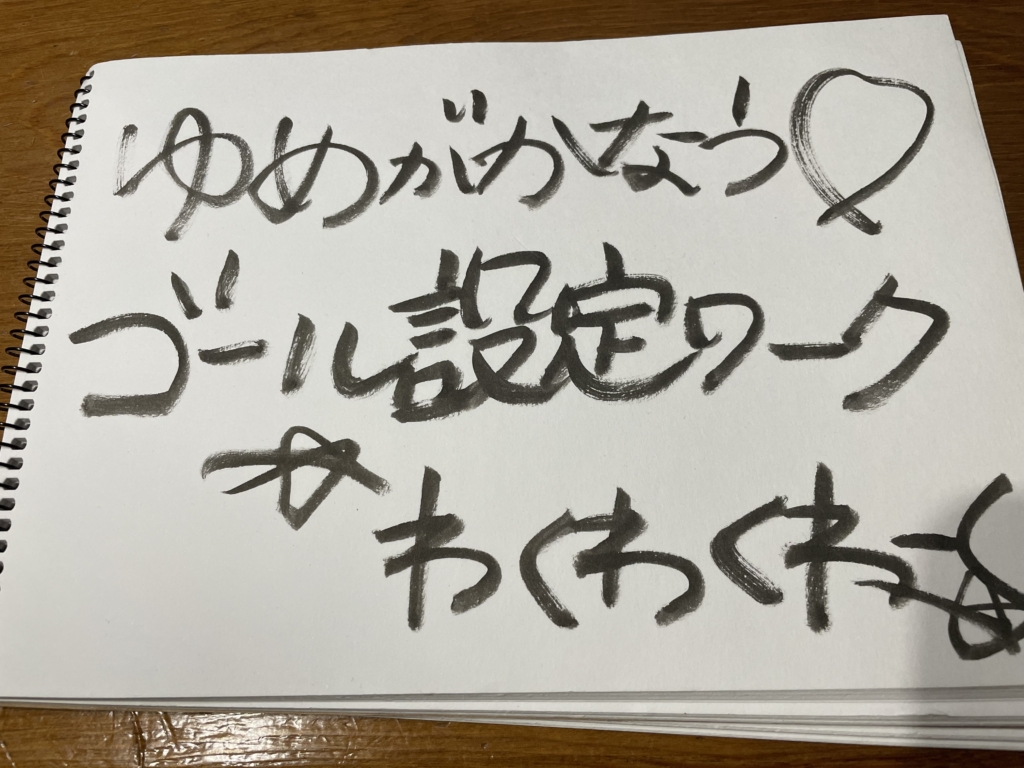 ゆめがかなう♡
ゴール設定ワーク
☆わくわくわーく☆